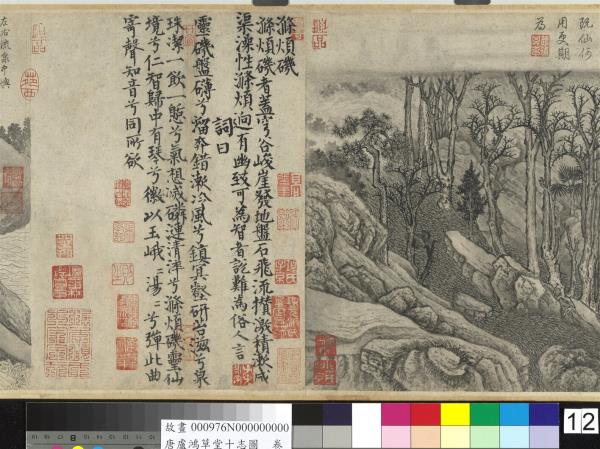 既仙何
用更期
為
滌煩磯
滌煩磯者蓋穹谷峻崖發地盤石飛流攢激積漱成
渠澡性滌煩迥有幽致可為智者說難為俗人言
詞曰
靈磯盤礡兮溜奔錯漱泠風兮鎮冥壑研苔滋兮泉
珠潔一飲一憩兮氣想滅磷漣清淬兮滌煩磯靈仙
境兮仁智歸中有琴兮徽以玉峨峨湯湯兮彈此曲
寄聲知音兮同所欲
12
故畫 000976N000000000
唐盧鴻草堂十志圖 卷